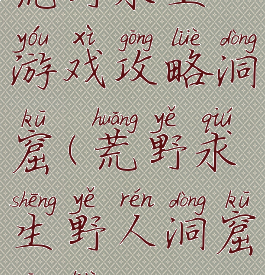 yóu xì gōng lüè dòng
游戏攻略洞
kū huāng yě qiú
窟(荒野求
shēng yě rén dòng kū
生野人洞窟